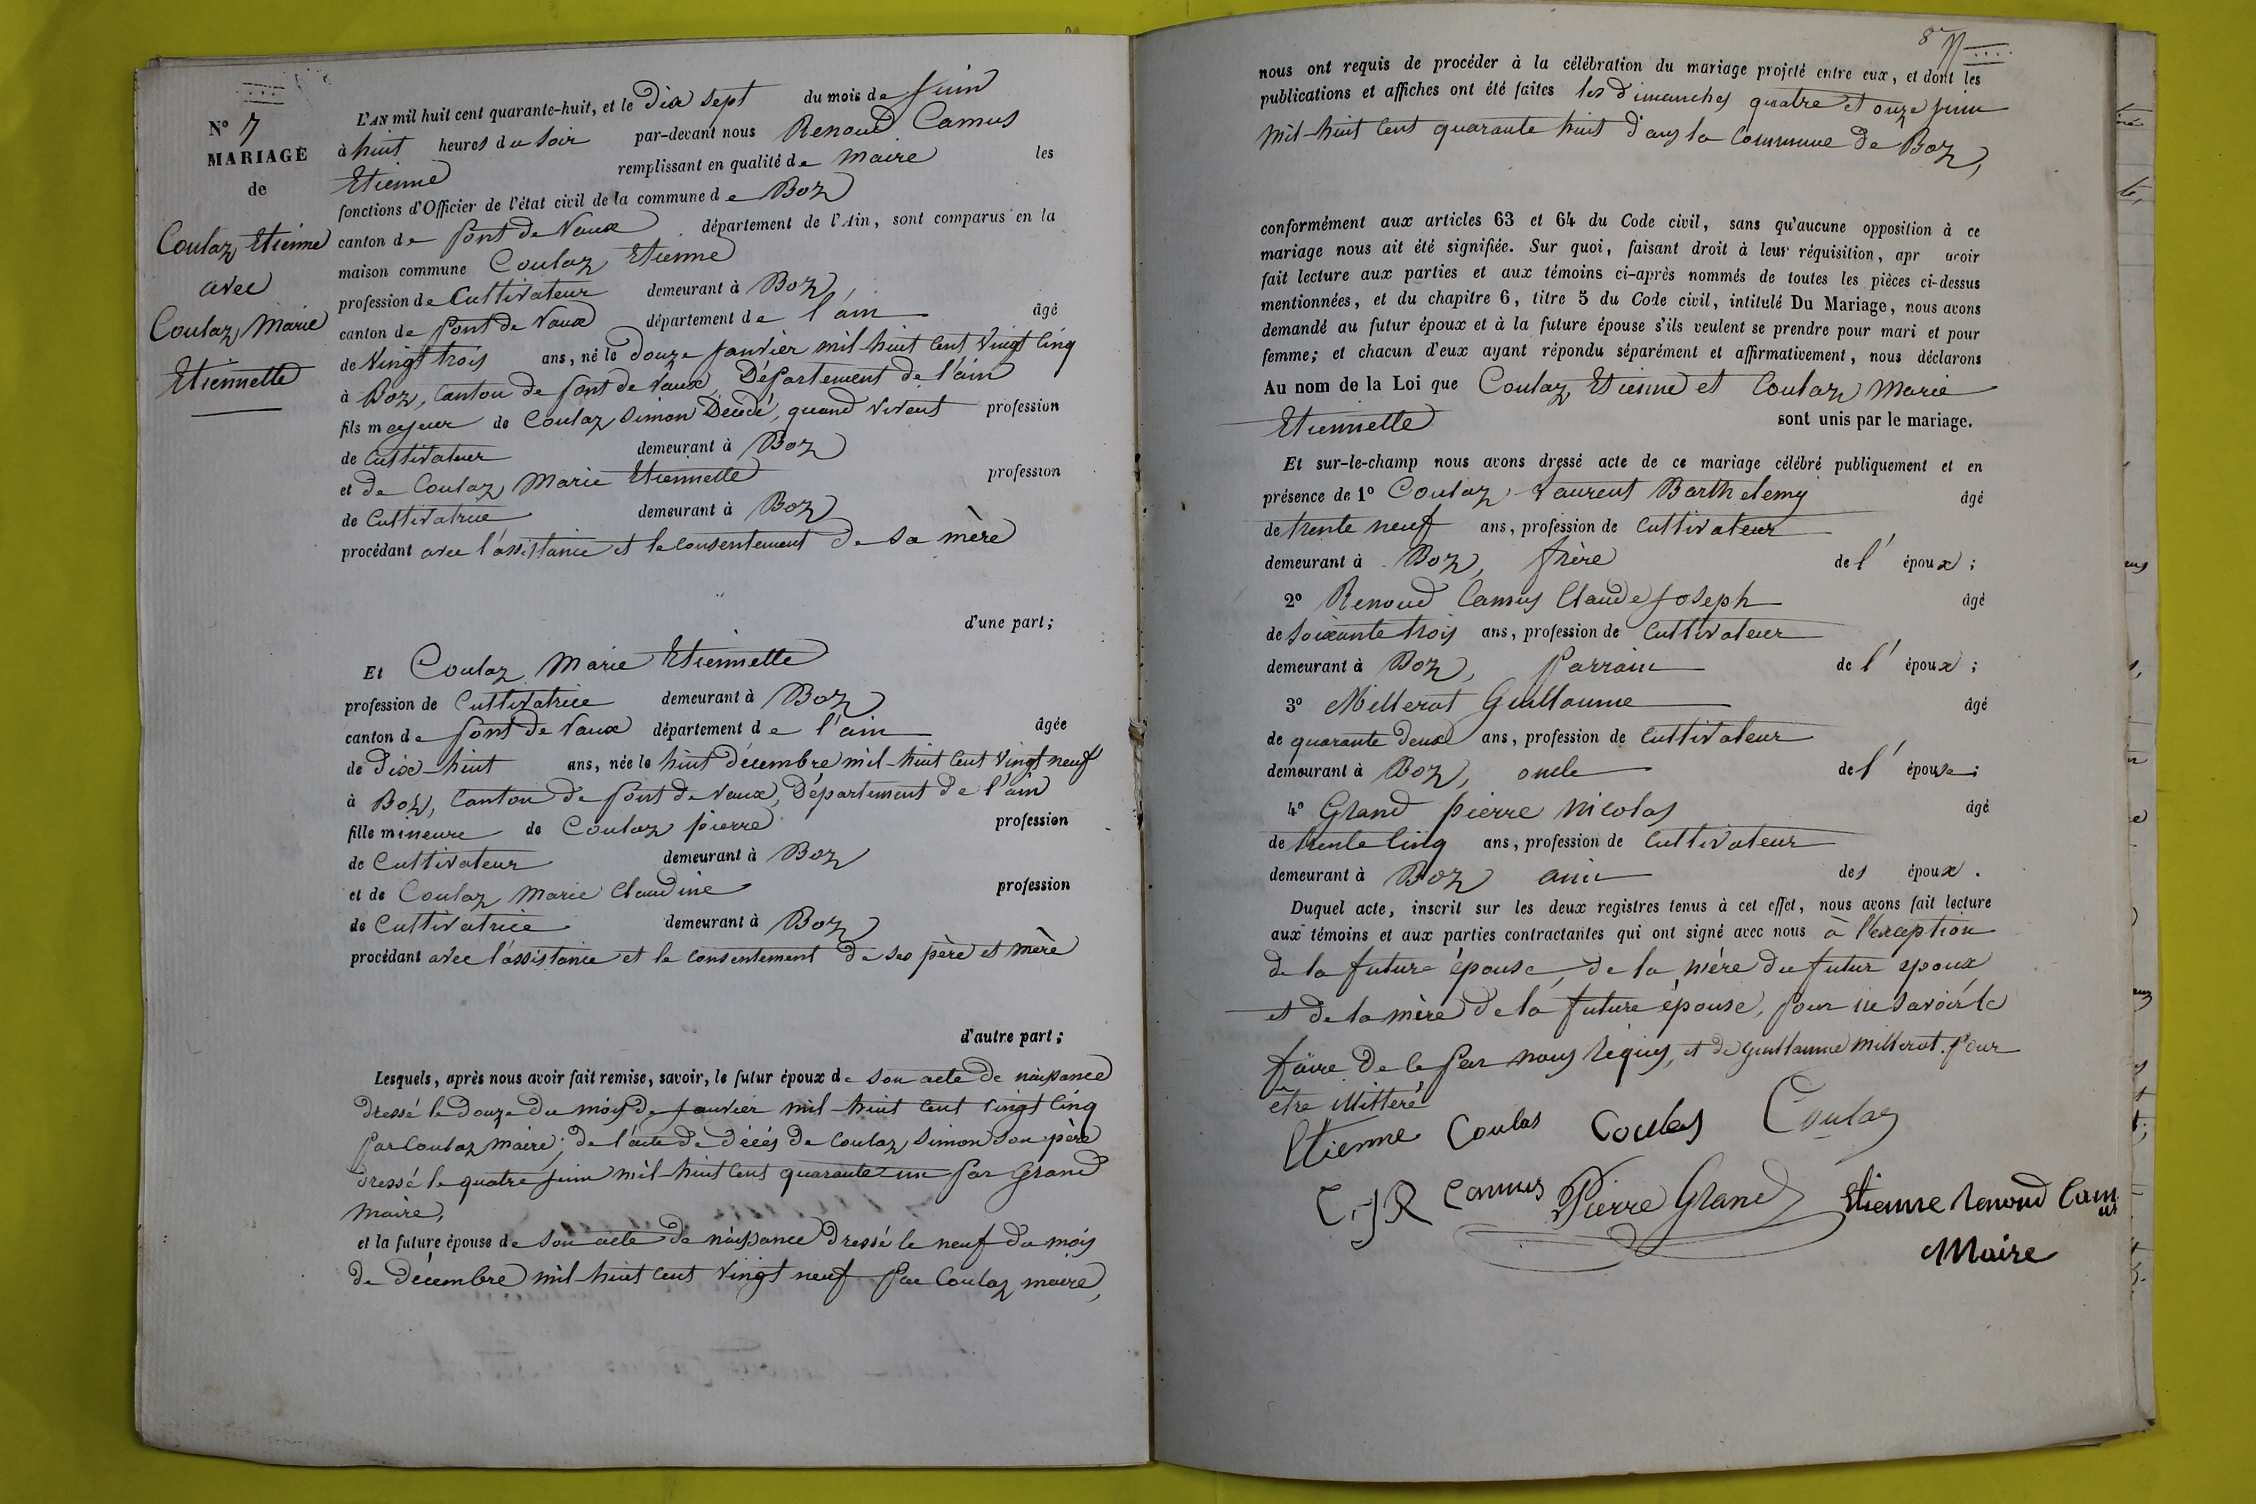 N° 7
MARIAGE
de
Coulaz Etienne
avec
Coulaz Marie
Etiennette
L'AN mil huit cent quarante-huit, et le Dix sept du mois de Juin
à huit heures du soir par-devant nous Renoud Camus
Etienne remplissant en qualité de Maire les
fonctions d'Officier de l'état civil de la commune de Boz
canton de pont de Vaux département de l'Ain, sont comparus en la
maison commune Coulaz Etienne
profession de Cultivateur demeurant à Boz,
canton de pont de Vaux département de l'ain âgé
de Vingt trois ans, né le douze Janvier mil huit cent vingt cinq
à Boz, Canton de pont de Vaux, Département de l'ain
fils majeur de Coulaz Simon Décédé, quand vivant profession
de Cultivateur demeurant à Boz
et de Coulaz Marie Etiennette profession
de Cultivatrice demeurant à Boz
procédant avec l'assistance et le consentement de sa mère
d'une part;
Et Coulaz Marie Etiennette
profession de Cultivatrice demeurant à Boz
canton de pont de Vaux département de l'ain âgée
de dix-huit ans, née le huit décembre mil-huit cent vingt neuf
à Boz, Canton de pont de Vaux, Département de l'ain
fille mineure de Coulaz pierre profession
de Cultivateur demeurant à Boz
et de Coulaz Marie Claudine profession
de Cultivatrice demeurant à Boz
procédant avec l'assistance et le consentement de ses père et mère
d'autre part;
Lesquels, après nous avoir fait remise, savoir, le futur époux de son acte de naissance
dressé le douze du mois de Janvier mil-huit cent vingt cinq
par Coulaz Maire; de l'acte de décés de Coulaz Simon son père
dressé le quatre juin mil-huit cent quarante un par Grand
Maire,
et la future épouse de son acte de naissance dressé le neuf du mois
de décembre mil huit cent vingt neuf par Coulaz maire,
8
nous ont requis de procéder à la célébration du mariage projeté entre eux, et dont les
publications et affiches ont été faites les dimanches quatre et onze juin
mil-huit cent quarante huit dans la commune de Boz,
conformément aux articles 63 et 64 du Code civil, sans qu'aucune opposition à ce
mariage nous ait été signifiée. Sur quoi, faisant droit à leur réquisition, apr avoir
fait lecture aux parties et aux témoins ci-après nommés de toutes les pièces ci-dessus
mentionnées, et du chapitre 6, titre 5 du Code civil, intitulé Du Mariage, nous avons
demandé au futur époux et à la future épouse s'ils veulent se prendre pour mari et pour
femme; et chacun d'eux ayant répondu séparément et affirmativement, nous déclarons
Au nom de la Loi que Coulaz Etienne et Coulaz Marie
Etiennette sont unis par le mariage.
Et sur-le-champ nous avons dressé acte de ce mariage célébré publiquement et en
présence de 1° Coulaz Laurent Barthelemy âgé
de trente neuf ans, profession de Cultivateur
demeurant à Boz, frère de l'époux;
2° Renoud Camus Claude Joseph âgé
de soixante trois ans, profession de Cultivateur
demeurant à Boz, parrain de l'époux;
3° Millerat Guillaume âgé
de quarante deux ans, profession de Cultivateur
demeurant à Boz, oncle de l'épouse;
4° Grand pierre nicolas âgé
de trente cinq ans, profession de Cultivateur
demeurant à Boz ami des époux.
Duquel acte, inscrit sur les deux registres tenus à cet effet, nous avons fait lecture
aux témoins et aux parties contractantes qui ont signé avec nous à l'exception
de la future épouse, de la mère du futur époux
et de la mère de la future épouse, pour ne savoir le
faire de ce par nous requis, et de Guillaume Millerat pour
être illitteré
Etienne Coulas Coulas Coulaz
C. J R Camus Pierre Grand Etienne Renoud Camus
Maire